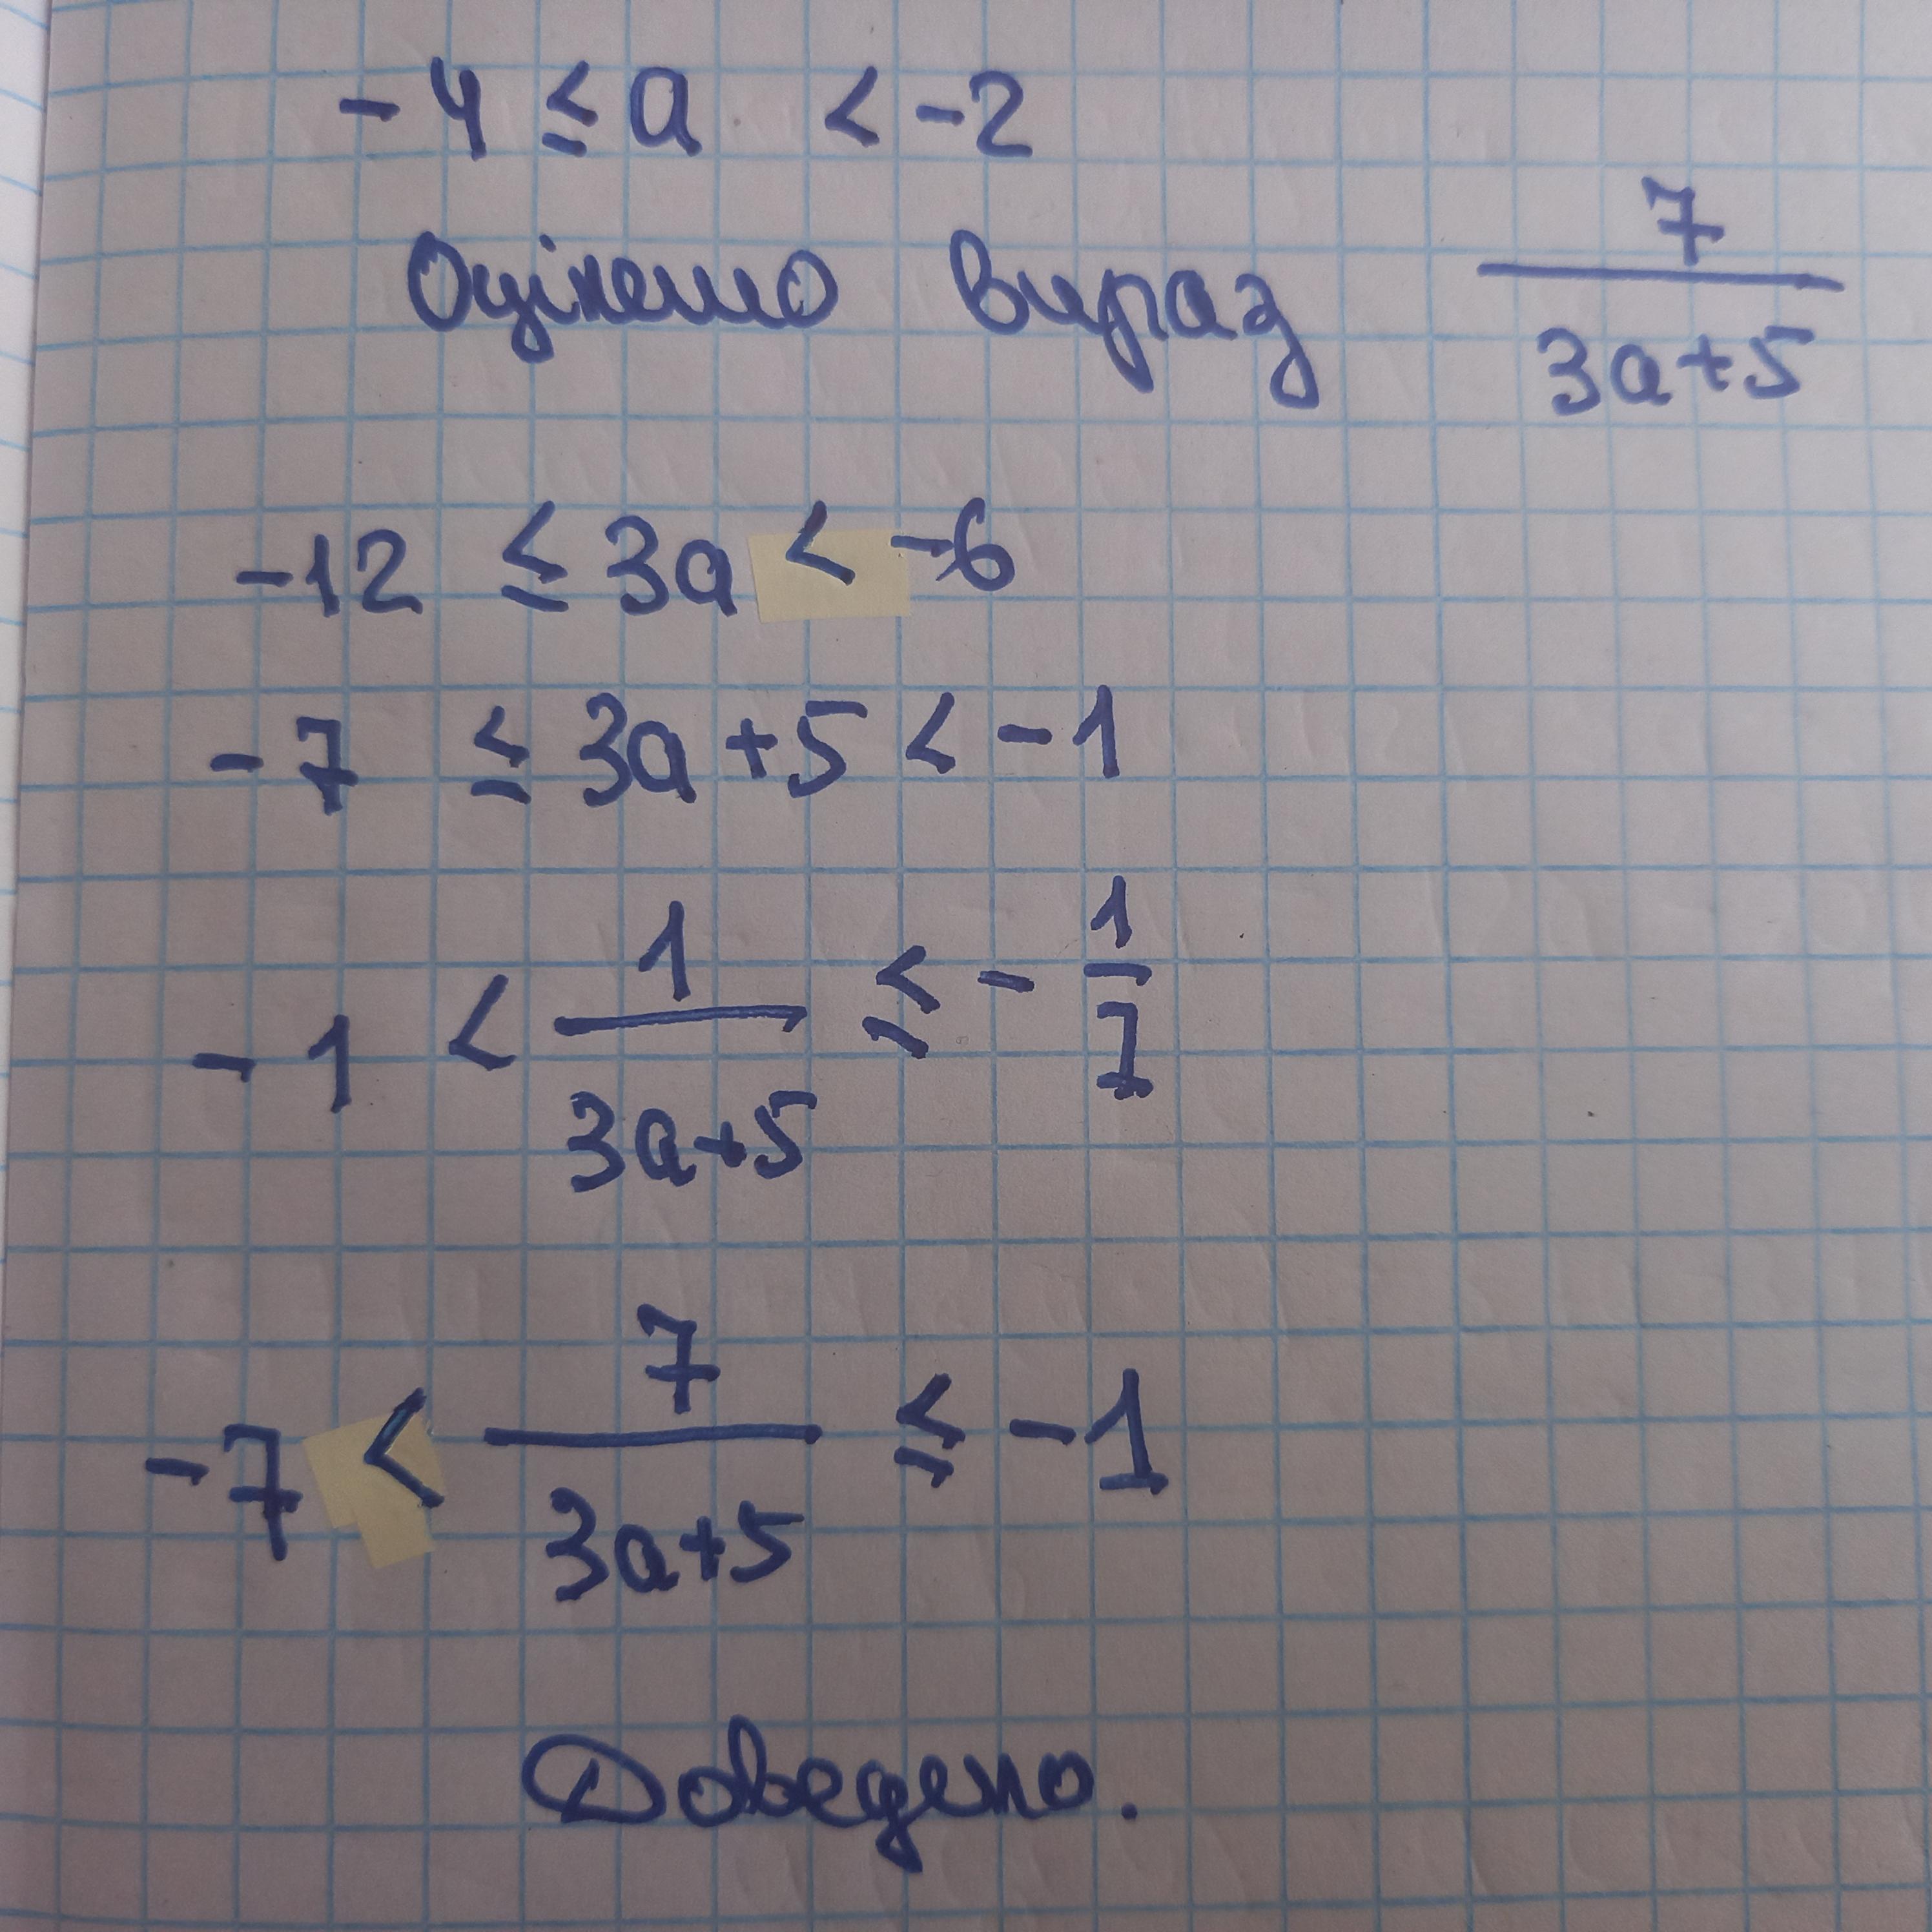 -4 ≤ a < -2
Оцінемо вираз 7/(3a+5)
-12 ≤ 3a < -6
-7 ≤ 3a+5 < -1
-1 < 1/(3a+5) ≤ -1/7
-7 < 7/(3a+5) ≤ -1
Доведено.